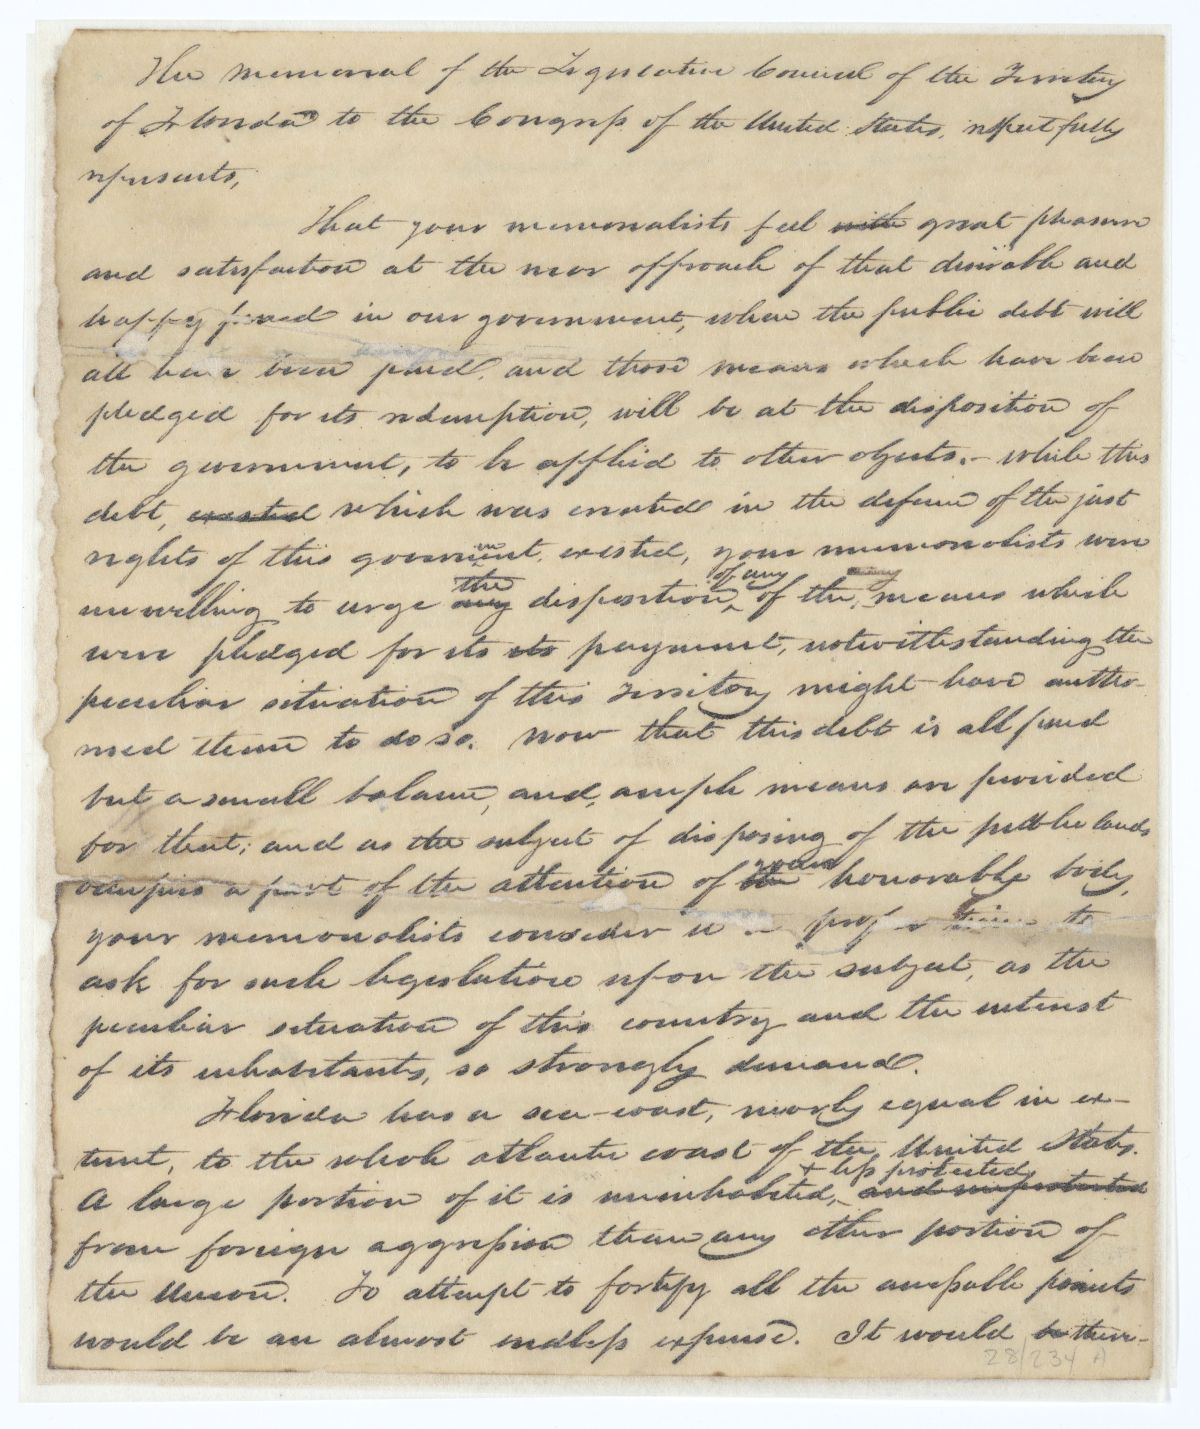 The memorial of the Legislative Council of the Territory
of Florida to the Congress of the United States, respectfully
represents,
That your memorialists feel with great pleasure
and satisfaction at the near approach of that desirable and
happy period in our government, when the public debt will
all have been paid, and those means which have been
pledged for its redemption, will be at the disposition of
the government, to be applied to other objects. - while this
debt, created which was created in the defence of the just
rights of this government, existed, your memorialists were
unwilling to urge any the disposition, of any of the, means which
were pledged for its its payment, notwithstanding the
peculiar situation of this Territory might have autho-
rised them to do so. Now that this debt is all paid
but a small balance, and, ample means are provided
for that; and as the subject of disposing of the public lands
occupies a part of the attention of the your honorable body,
your memorialists consider it a proper time to
ask for such legislation upon the subject, as the
peculiar situation of this country and the interest
of its inhabitants, so strongly demand.
Florida has a sea-coast, nearly equal in ex-
tent, to the whole atlantic coast of the United States.
A large portion of it is uninhabited, and unprotected + less protected
from foreign aggression than any other portion of
the Union. To attempt to fortify all the accessable points
would be an almost endless expense. It would be then-
28/234 A